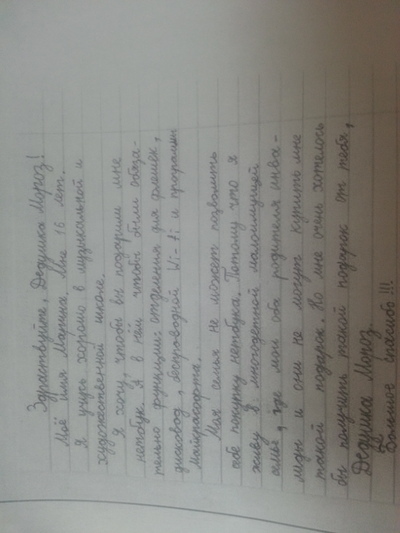 Здраствуйте, Дедушка Мороз!
Моё имя Марина. Мне 16 лет.
Я учусь хорошо в музыкальной и
художественной школе.
Я хочу, чтобы вы подарили мне
нетбук. А в нём чтобы были обяза-
тельно функции: отделения для флешек,
дисковод, беспроводной Wi-fi и программы
Майкрософта.
Моя семья не может позволить
себе покупку нетбука. Потому что я
живу в многодетной малоимущей
семье, где мои оба родителя инва-
лиды и они не могут купить мне
такой подарок. Но мне очень хотелось
бы получить такой подарок от тебя,
Дедушка Мороз.
Большое спасибо!!!